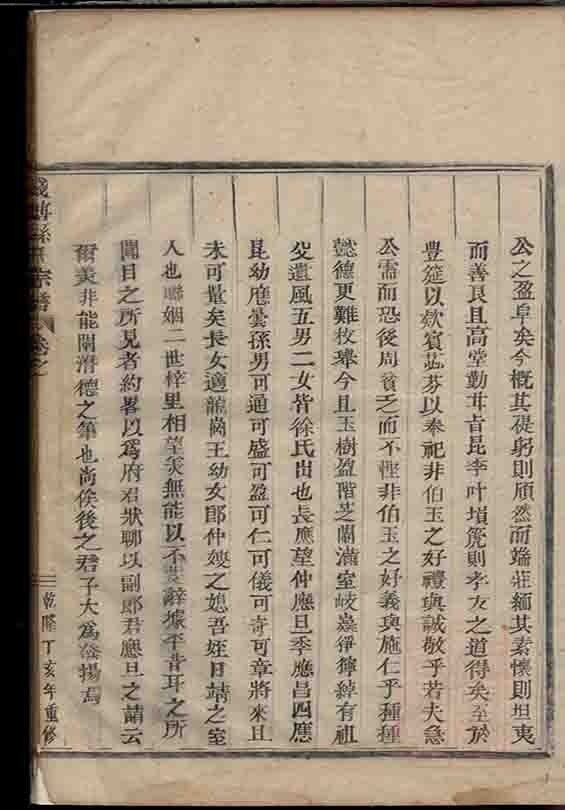 公之盈阜矣今概其禔躬則頎然而端莊緬其素懷則坦夷
而善良且高堂勤甘旨昆季叶塤箎則孝友之道得矣至於
豊筵以欸賓苾芬以奉祀非伯玉之好禮與誠敬乎若夫急
公需而恐後周貧乏而不悭非伯玉之好義與施仁乎種種
懿德更難枚舉今且玉樹盈階芝蘭滿室岐嶷伊寧綽有祖
父遺風五男二女皆徐氏出也長應望仲應旦季應昌四應
昆幼應雲孫男可通可盛可盈可仁可儀可奇可章將來且
未可量矣長女適龍崗王幼女郎仲嫂之媳吾姪日靖之室
人也聯姻二世梓里相望矣無能以不文辭據平昔耳之所
聞目之所見者約畧以爲府君狀聊以副郎君應旦之請云
爾美非能闡潛德之筆也尚俟後之君子大爲發揚焉
孫氏宗譜 卷之
乾隆丁亥年重修